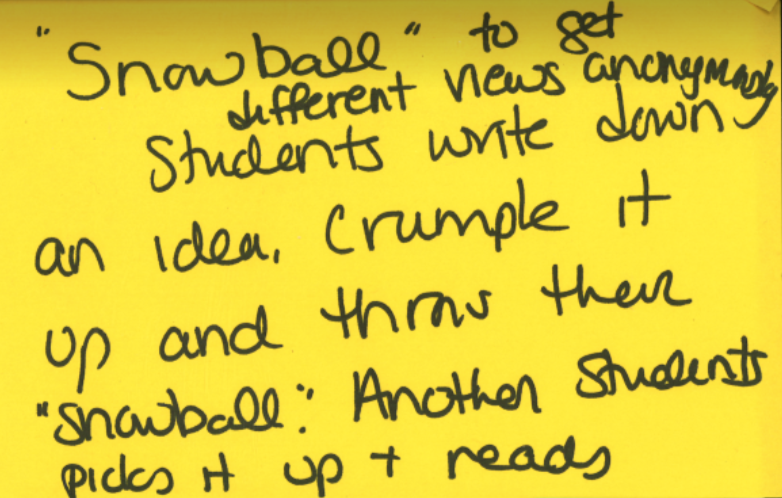 "Snowball" to get
different views anonymously
Students write down
an idea. Crumple it
up and throw their
"snowball." Another students
picks it up + reads